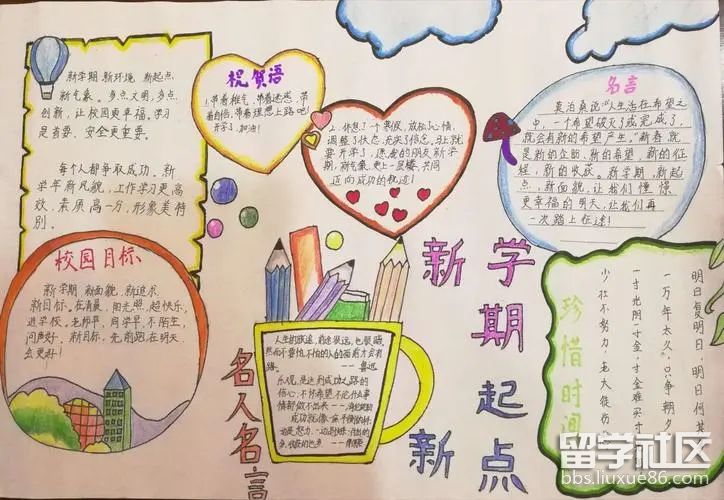 新学期,新环境,新起点,
新气象。多点文明,多点
创新,让校园更幸福。学习
是首要、安全更重要。
每个人都争取成功、新
学年新风貌,工作学习更高
效、素质高一分,形象美特
别。
祝贺语
1.带着稚气,带着迷惑,带
着自信,带着理想上路吧!
开学了,加油!
2、休息了一个寒假,放松心情,
调整了状态,充实了信念。马上就
要开学了,愿我的朋友新学
期,新气象,更上一层楼,共同
迈向成功的轨道!
名言
莫泊桑说"人生活在希望之
中,一个希望破灭了或完成了,
就会有新的希望产生。"新春就
是新的企盼、新的希望,新的征
程,新的收获。新学期,新起
点,新面貌,让我们憧憬
更幸福的明天,让我们再
一次踏上征途!
校园目标
新学期,新面貌,新追求,
新目标。在清晨,阳光照,超快乐,
进学校。老师早,同学早,不陌生,
问声好。新目标,先前跑,在明天
么更好!
新学期
新起点
名人名言
人生的旅途,前途很远,也很暗。
然而不要怕,不怕的人的面前才会有
路。——鲁迅
乐观,是达到成功之路的
信心,不怀希望,不论什么事
情都做不出来——海伦凯勒
珍惜时间
明日复明日,明日何其
一万年太久,只争朝夕
一寸光阴一寸金,寸金难买寸
少壮不努力,老大徒伤
留学社区
bbs.liuxue86.com